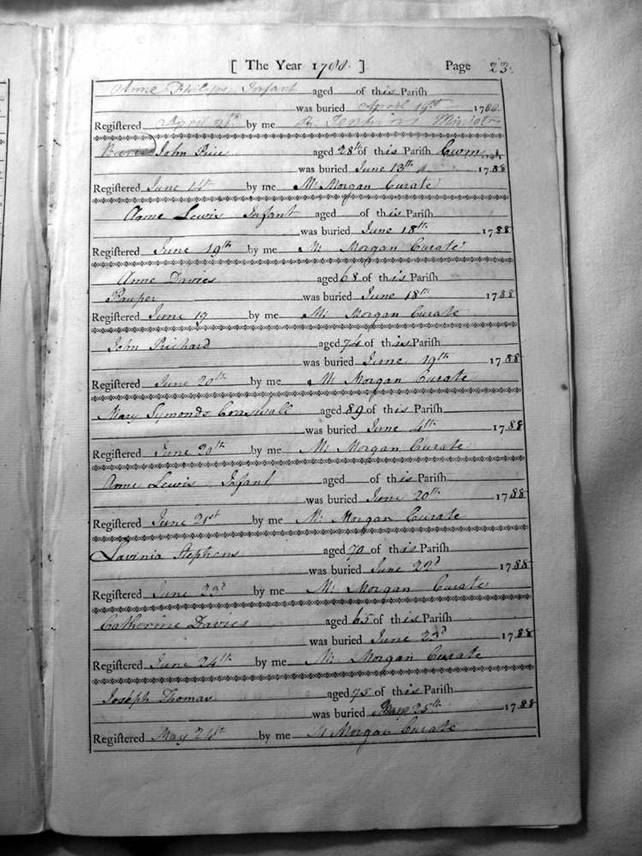 [ The Year 1788. ] Page 23.
Anne Philips Infant aged of this Parish
was buried April 19th 1788
Registered April by me Jenkins Minister
John aged 28th of this Parish
was buried June 13th 1788
Registered June by me M. Morgan Curate
Anne Lewis Infant aged of this Parish
was buried June 18th 1788
Registered June 19th by me M. Morgan Curate
Anne Davies aged 68 of this Parish
Pauper was buried June 18th 1788
Registered June 19 by me M. Morgan Curate
John Prichard aged 74 of this Parish
was buried June 19th 1788
Registered June 20th by me M. Morgan Curate
Mary Symonds aged 89 of this Parish
was buried June 4th 1788
Registered June 20th by me M. Morgan Curate
Anne Lewis Infant aged of this Parish
was buried June 20th 1788
Registered June 21st by me M. Morgan Curate
Lavinia Stephens aged 70 of this Parish
was buried June 22d 1788
Registered June by me M. Morgan Curate
Catherine Davies aged 65 of this Parish
was buried June 23d 1788
Registered June 24th by me M. Morgan Curate
Joseph Thomas aged 75 of this Parish
was buried 25th 1788
Registered May by me M Morgan Curate